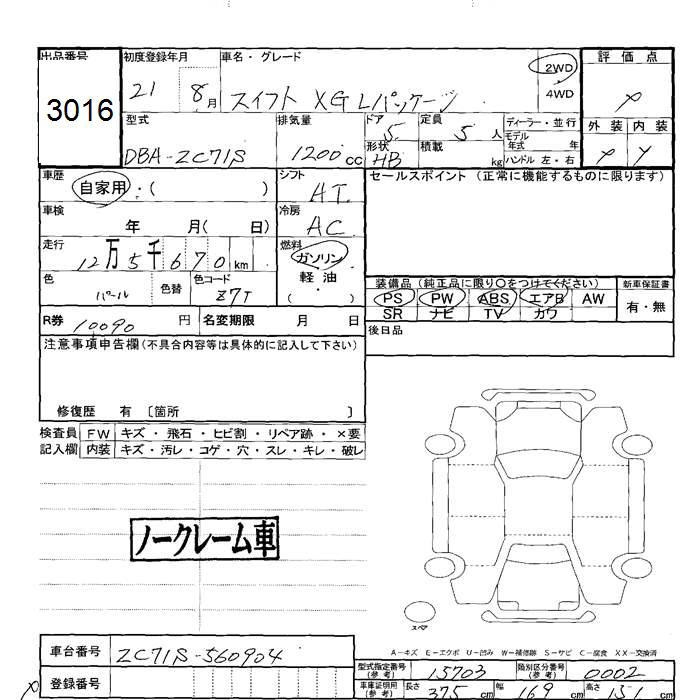 出品番号 初度登録年月 車名・グレード 評価点
3016 21 8月 スイフト XG Lパッケージ 2WD 4WD
型式 排気量 ドア 5 定員 5 人 ディーラー・並行 外装 内装
モデル年式 年
DBA-ZC71S 1200cc 形状 HB 積載 kg ハンドル 左・右
車歴 自家用・( ) シフト AT セールスポイント (正常に機能するものに限ります)
車検 年 月( 日) 冷房 AC
走行 12万5千670km 燃料 ガソリン 軽油・( )
色 パール 色替 色コード Z7T
装備品 (純正品に限り○をつけてください) 新車保証書
PS PW ABS エアB AW 有・無
SR ナビ TV カワ
R券 10090 円 名変期限 月 日 後日品
注意事項申告欄(不具合内容等は具体的に記入して下さい)
修復歴 有 〔箇所 〕
検査員 FW キズ・飛石・ヒビ割・リペア跡・×要
記入欄 内装 キズ・汚レ・コゲ・穴・スレ・キレ・破レ
ノークレーム車
スペア
A-キズ E-エクボ U-凹み W-補修跡 S-サビ C-腐食 XX-交換済
車台番号 ZC71S-560904
型式指定番号(参考) 15703 類別区分番号(参考) 0002
登録番号
車庫証明用(参考) 長さ 375 cm 幅 169 cm 高さ 151 cm